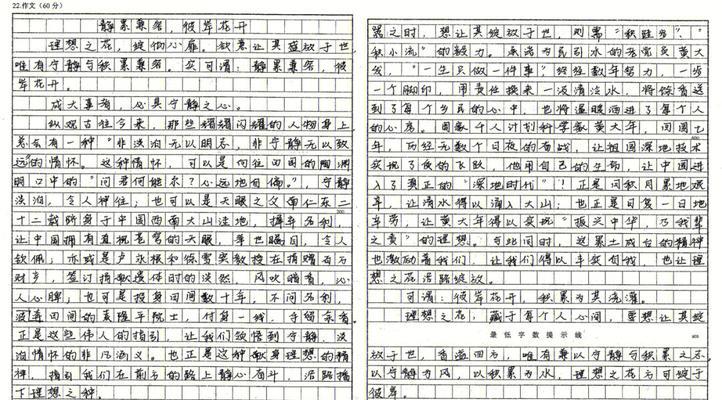 22.作文(60分)
静累兼容，彼岸花开
理想之花，绽仰心扉。欲意让其盛放于世，
唯有守静与积累兼容。实可谓：静累兼容，彼
岸花开。
成大事者，必具守静之心。
纵观古往今来，那些熠熠闪耀的人物身上，
总会有一种“非淡泊无以明志，非宁静无以致
远的情怀。这种情怀，可以是向往田园的陶渊
明口中的“问君何能尔？心远地自偏。”，宁静
淡泊，令人神往；也可以是天眼之父南仁东二
十二载跻身于中国西南大山洼地，摒弃名利，
让中国拥有直视苍穹的天眼，举世瞩目，令人
钦佩；亦或是卢永根和徐雪宾教授在捐赠百万
财产，签订捐献遗体时的淡然，风吹暗香，沁
人心脾；也可是投身田间数十年，不问名利，
浸造田间的袁隆平院士，付身一线，守得余香
正是这些伟人的指引，让我们领悟到守静、淡
泊情怀的非凡涵义。也正是这种献身理想的精
神，指引我们在前方的路上静心奋斗，沿路播
下理想之种。
器之时，想让其绽放于世，则需“积跬步”、“
积小流”的毅力。承诺为民引水的老党员黄大
发，“一生只做一件事”终经数年努力，一步
一个脚印，用责任换来一汲清澈水，将馀香送
到了每个乡民的心中，也将温暖洒进了每个人
的心房。国数千人计划科学教黄大年，回国七
年，历经无数个日夜的奋战，让祖国深地技术
实现了质的飞跃，他用自己的生命，让中国进
入了真正的“深地时代”！正是问积月累地艰
辛，让清水得以涌入大山；也正是日复一日地
辛劳，让黄大年得以实现“振兴中华，乃我辈
之责”的理想。与此同时，这累土成台的精神
也激励着我们，让我们得以丰实自我，也让理
想之花沿路绽放。
可谓：彼岸花开，积累为其浇灌。
理想之花，藏于每个人心间，要想让其绽
最低字数提示线
放于世，香溢四方，唯有兼以守静与积累之态
以守静为风，以积累为水，理想之花方可绽于
彼岸。